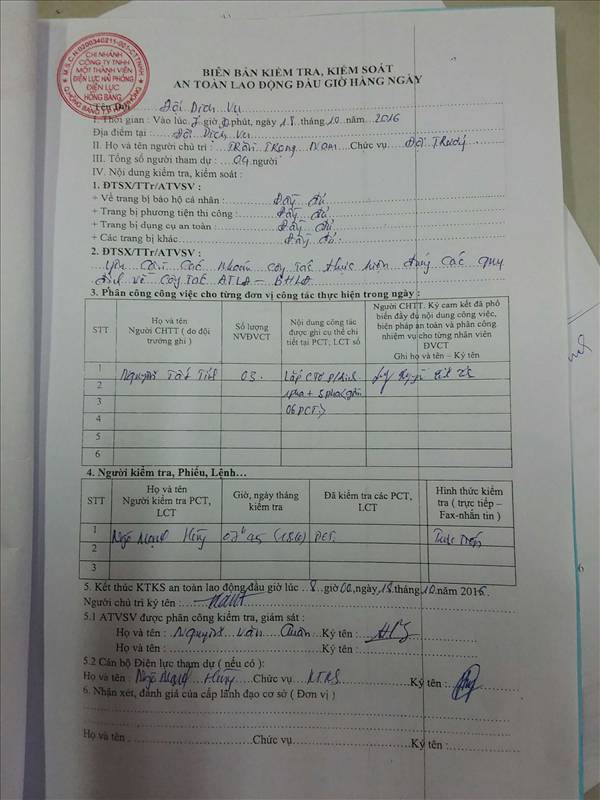 M.S.C.N:0200340211-001-CTTNHH
CHI NHÁNH
CÔNG TY TNHH
MỘT THÀNH VIÊN
ĐIỆN LỰC HẢI PHÒNG
ĐIỆN LỰC
HỒNG BÀNG
BIÊN BẢN KIỂM TRA, KIỂM SOÁT
AN TOÀN LAO ĐỘNG ĐẦU GIỜ HÀNG NGÀY
Tên Đội Đội Dịch Vụ
I. Thời gian : Vào lúc 7 giờ phút, ngày 18 tháng 10 năm 2016
Địa điểm tại : Đội Dịch Vụ
II. Họ và tên người chủ trì : Trần Trọng Chức vụ Đội Trưởng
III. Tổng số người tham dự : 04 người
IV. Nội dung kiểm tra, kiểm soát :
1. ĐTSX/TTr/ATVSV :
+ Về trang bị bảo hộ cá nhân : Đầy đủ
+ Trang bị phương tiện thi công : Đầy đủ
+ Trang bị dụng cụ an toàn : Đầy đủ
+ Các trang bị khác Đầy đủ
2. ĐTSX/TTr/ATVSV :
Yêu cầu các nhóm công tác thực hiện đúng các quy
định về công tác ATLĐ - BHLĐ
3. Phân công công việc cho từng đơn vị công tác thực hiện trong ngày :
STT
Họ và tên
Người CHTT ( do đội
trưởng ghi )
Số lượng
NVĐVCT
Nội dung công tác
được ghi cụ thể chi
tiết tại PCT, LCT số
Người CHTT. Ký cam kết đã phổ
biến đầy đủ nội dung công việc,
biện pháp an toàn và phân công
nhiệm vụ cho từng nhân viên
ĐVCT
Ghi họ và tên – Ký tên
1 Nguyễn 03 Lắp CTƠ
2 1pha + 3pha
3 06 PCT
4
5
6
4. Người kiểm tra, Phiếu, Lệnh…
STT
Họ và tên
Người kiểm tra PCT,
LCT
Giờ, ngày tháng
kiểm tra
Đã kiểm tra các PCT,
LCT
Hình thức kiểm
tra ( trực tiếp –
Fax-nhắn tin )
1 Ngô Mạnh Hùng 07h45 PCT Trực tiếp
2
3
5. Kết thúc KTKS an toàn lao động đầu giờ lúc 8 giờ 00, ngày 18 tháng 10 năm 2016
Người chủ trì ký tên :
5.1 ATVSV được phân công kiểm tra, giám sát :
Họ và tên : Nguyễn Văn Quân Ký tên :
Họ và tên : Ký tên :
5.2 Cán bộ Điện lực tham dự ( nếu có ):
Họ và tên : Ngô Mạnh Hùng Chức vụ KTKS Ký tên :
6. Nhận xét, đánh giá của cấp lãnh đạo cơ sở ( Đơn vị )
Họ và tên : Chức vụ Ký tên :